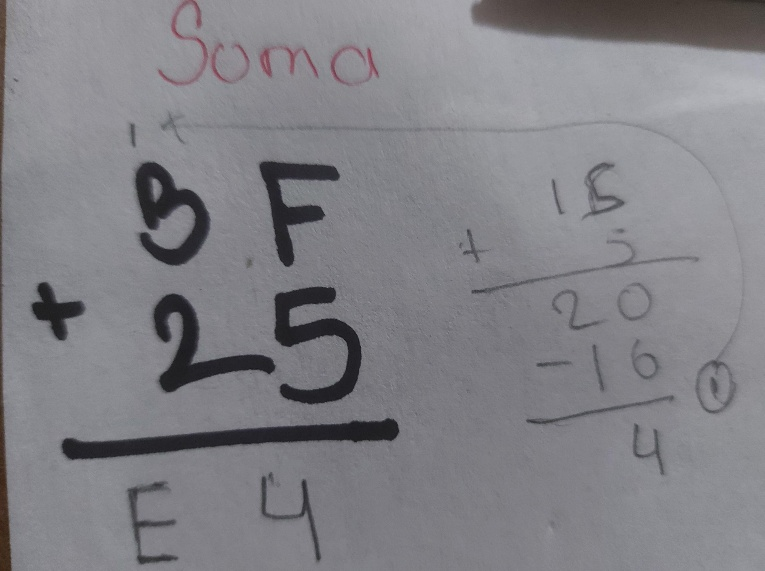 Soma
1
B F
+ 2 5
E 4
15
+ 5
20
-16
1
4